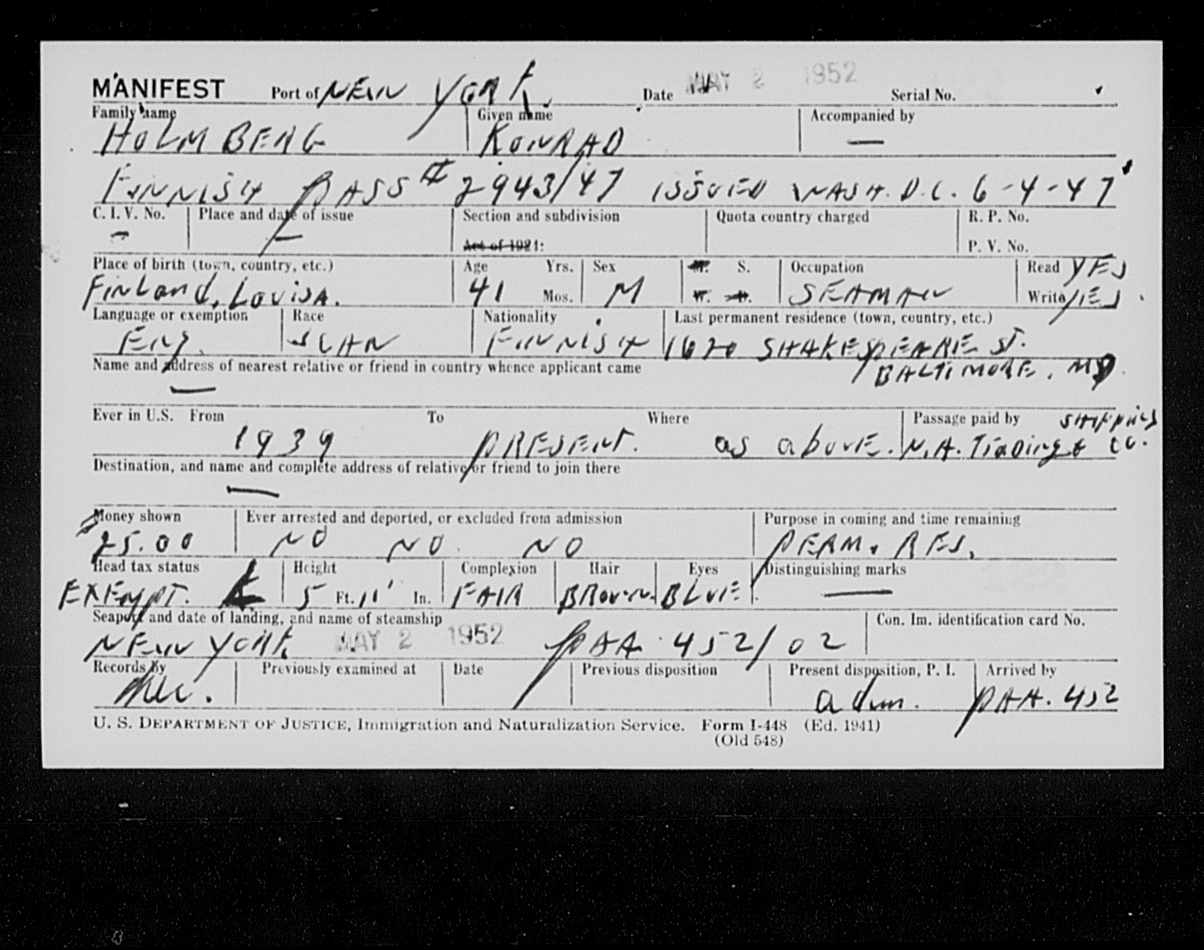 MANIFEST Port of NEW YORK. Date MAY 2 1952 Serial No.
Family name Given name Accompanied by
HOLMBERG KONRAD —
FINNISH PASS # 2943/47 ISSUED WASH. D.C. 6-4-47
C. I. V. No. Place and date of issue Section and subdivision Quota country charged R. P. No.
– – Act of 1921: P. V. No.
Place of birth (town, country, etc.) Age Yrs. Sex M. S. Occupation Read YES
Finland, Lovisa. 41 Mos. M W. D. SEAMAN Write YES.
Language or exemption Race Nationality Last permanent residence (town, country, etc.)
Eng. SCAN FINNISH 1620 SHAKESPEARE ST.
Name and address of nearest relative or friend in country whence applicant came BALTIMORE, MD.
—
Ever in U.S. From To Where Passage paid by SHIPPING
1939 PRESENT. as above. N.A. Trading & CO.
Destination, and name and complete address of relative or friend to join there
—
Money shown Ever arrested and deported, or excluded from admission Purpose in coming and time remaining
25.00 NO NO. NO PERM. RES.
Head tax status Height Complexion Hair Eyes Distinguishing marks
EXEMPT. 5 Ft. 11 In. FAIR BROWN. BLUE. —
Seaport and date of landing, and name of steamship Con. Im. identification card No.
NEW YORK. MAY 2 1952 PAA 452/02
Records by Previously examined at Date Previous disposition Present disposition, P. I. Arrived by
adm. PAA. 452
U. S. DEPARTMENT OF JUSTICE, Immigration and Naturalization Service. Form I-448 (Ed. 1941)
(Old 548)